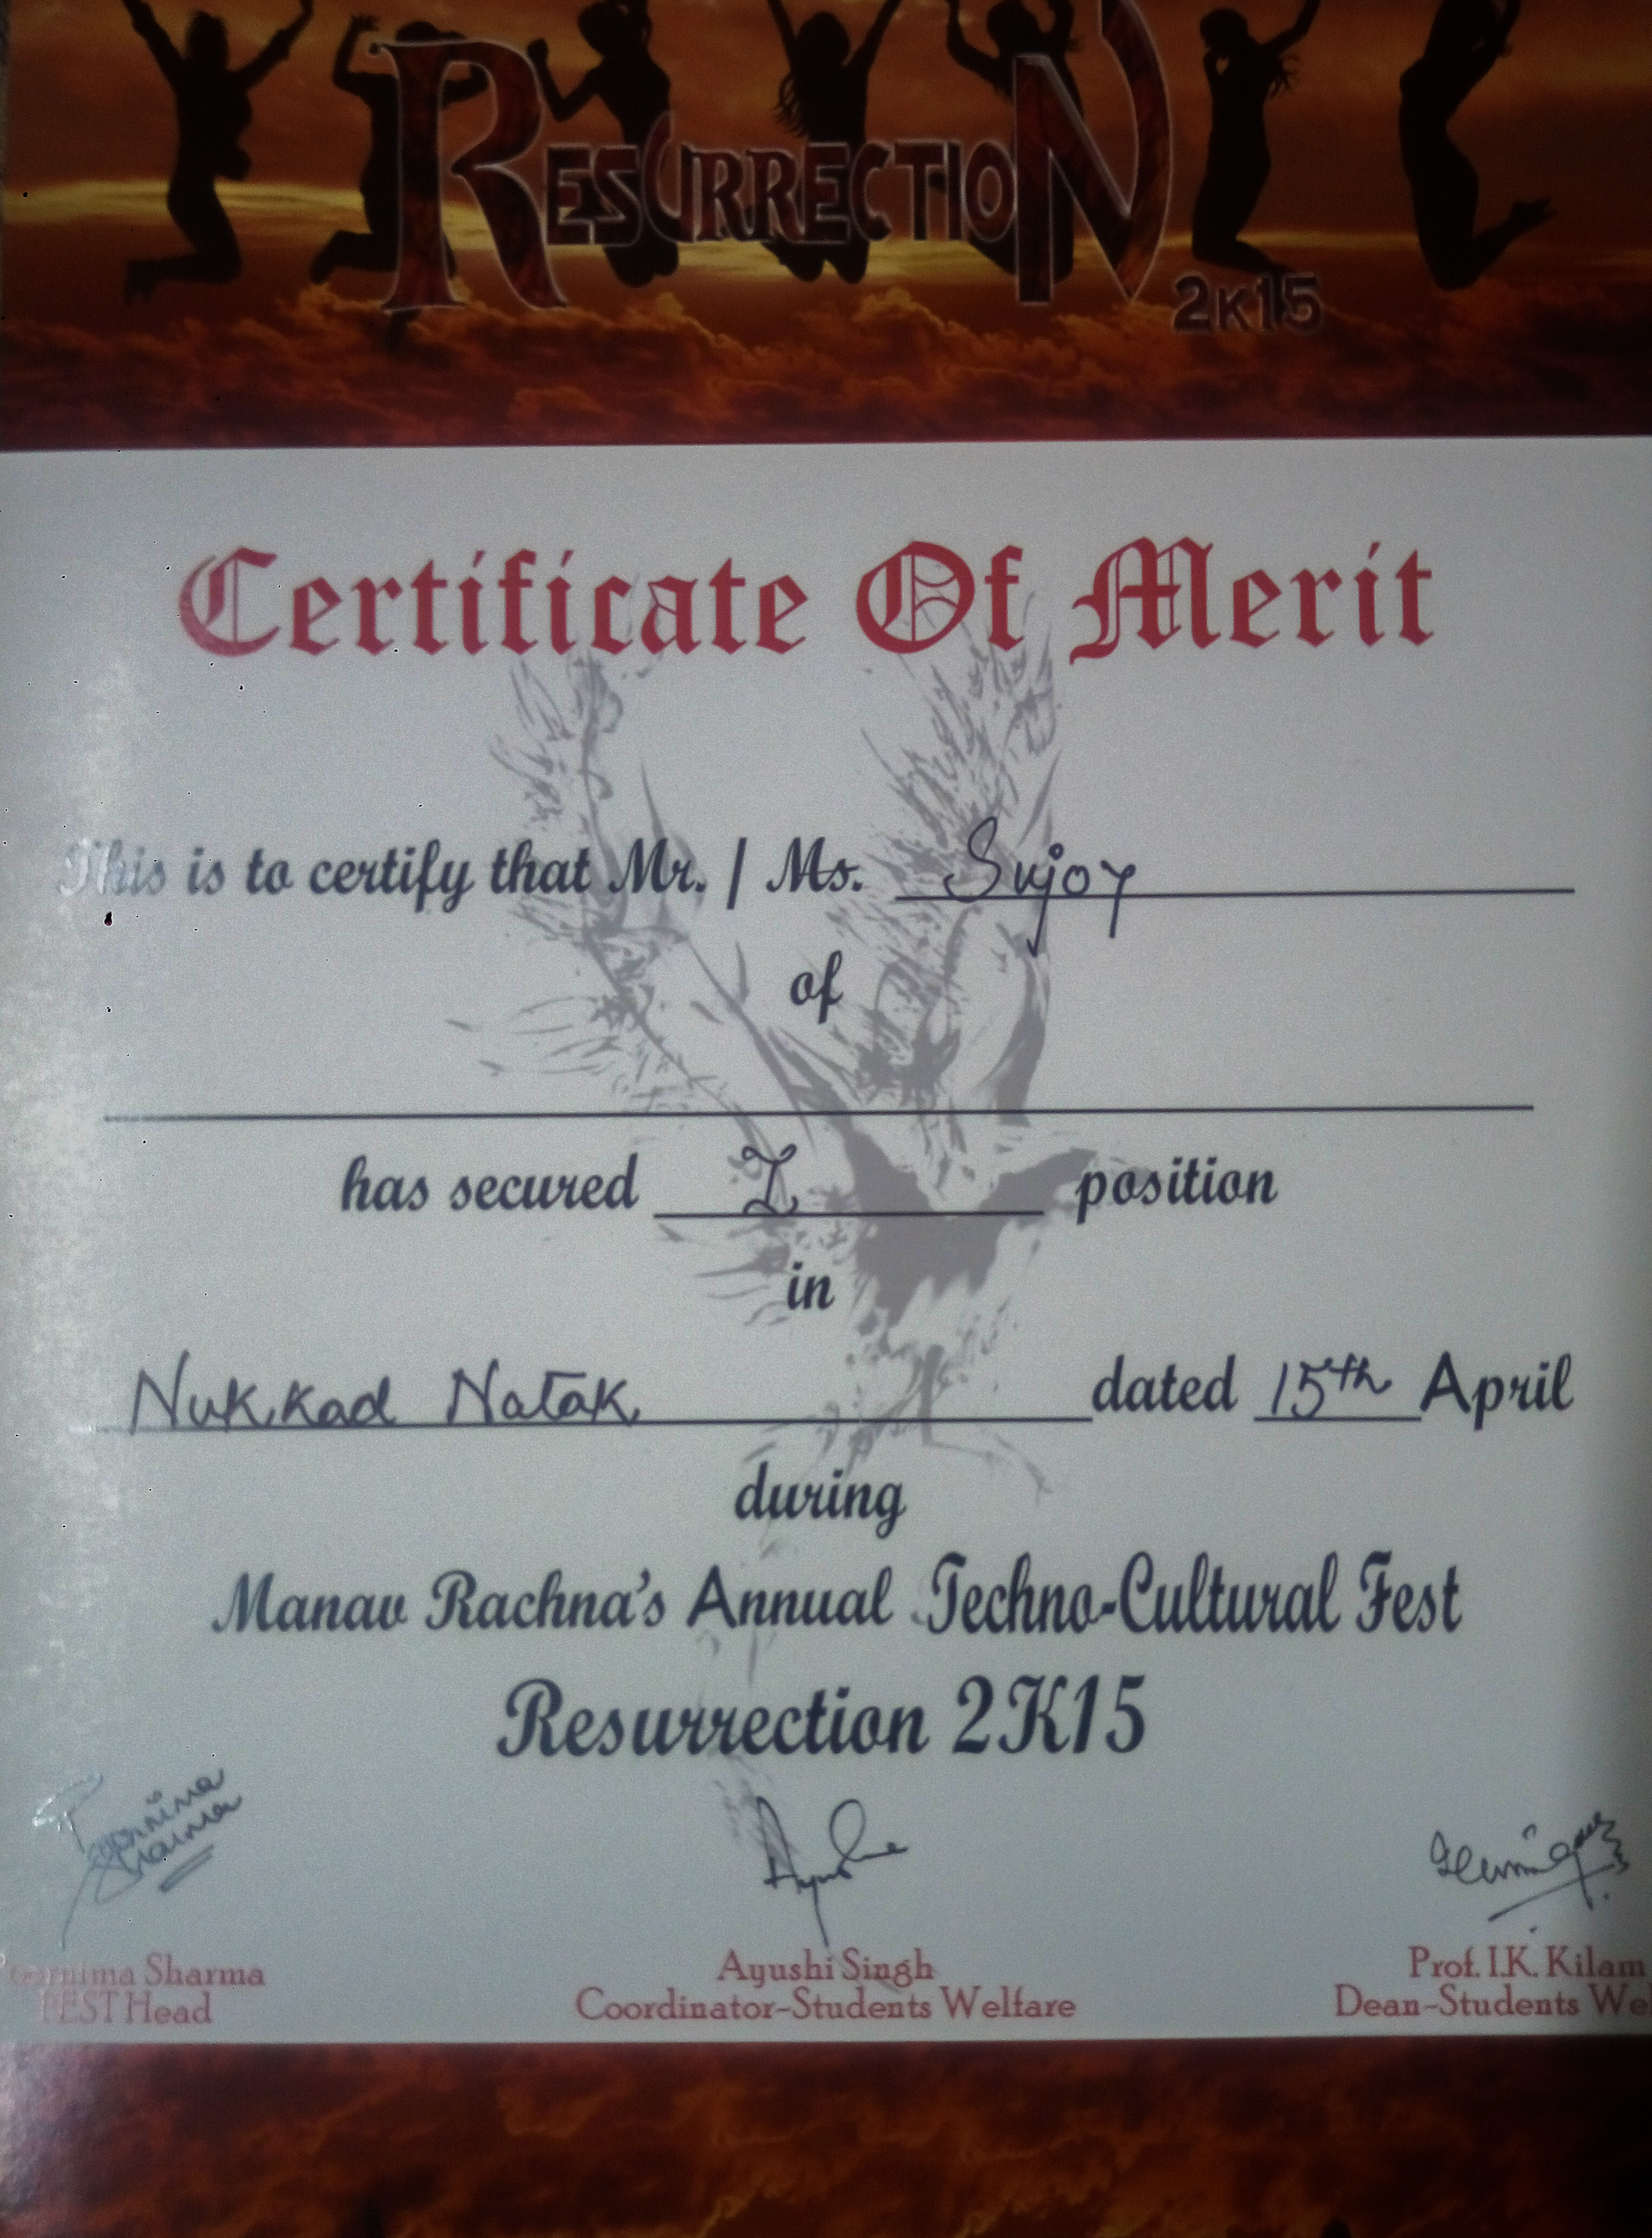 RESURRECTION
2K15
Certificate Of Merit
This is to certify that Mr. / Ms. Sujoy
of
has secured I position
in
Nukkad Natak dated 15th April
during
Manav Rachna's Annual Techno-Cultural Fest
Resurrection 2K15
Poornima Sharma
Ayushi Singh
Prof. I.K. Kilam
FEST Head
Coordinator-Students Welfare
Dean-Students We